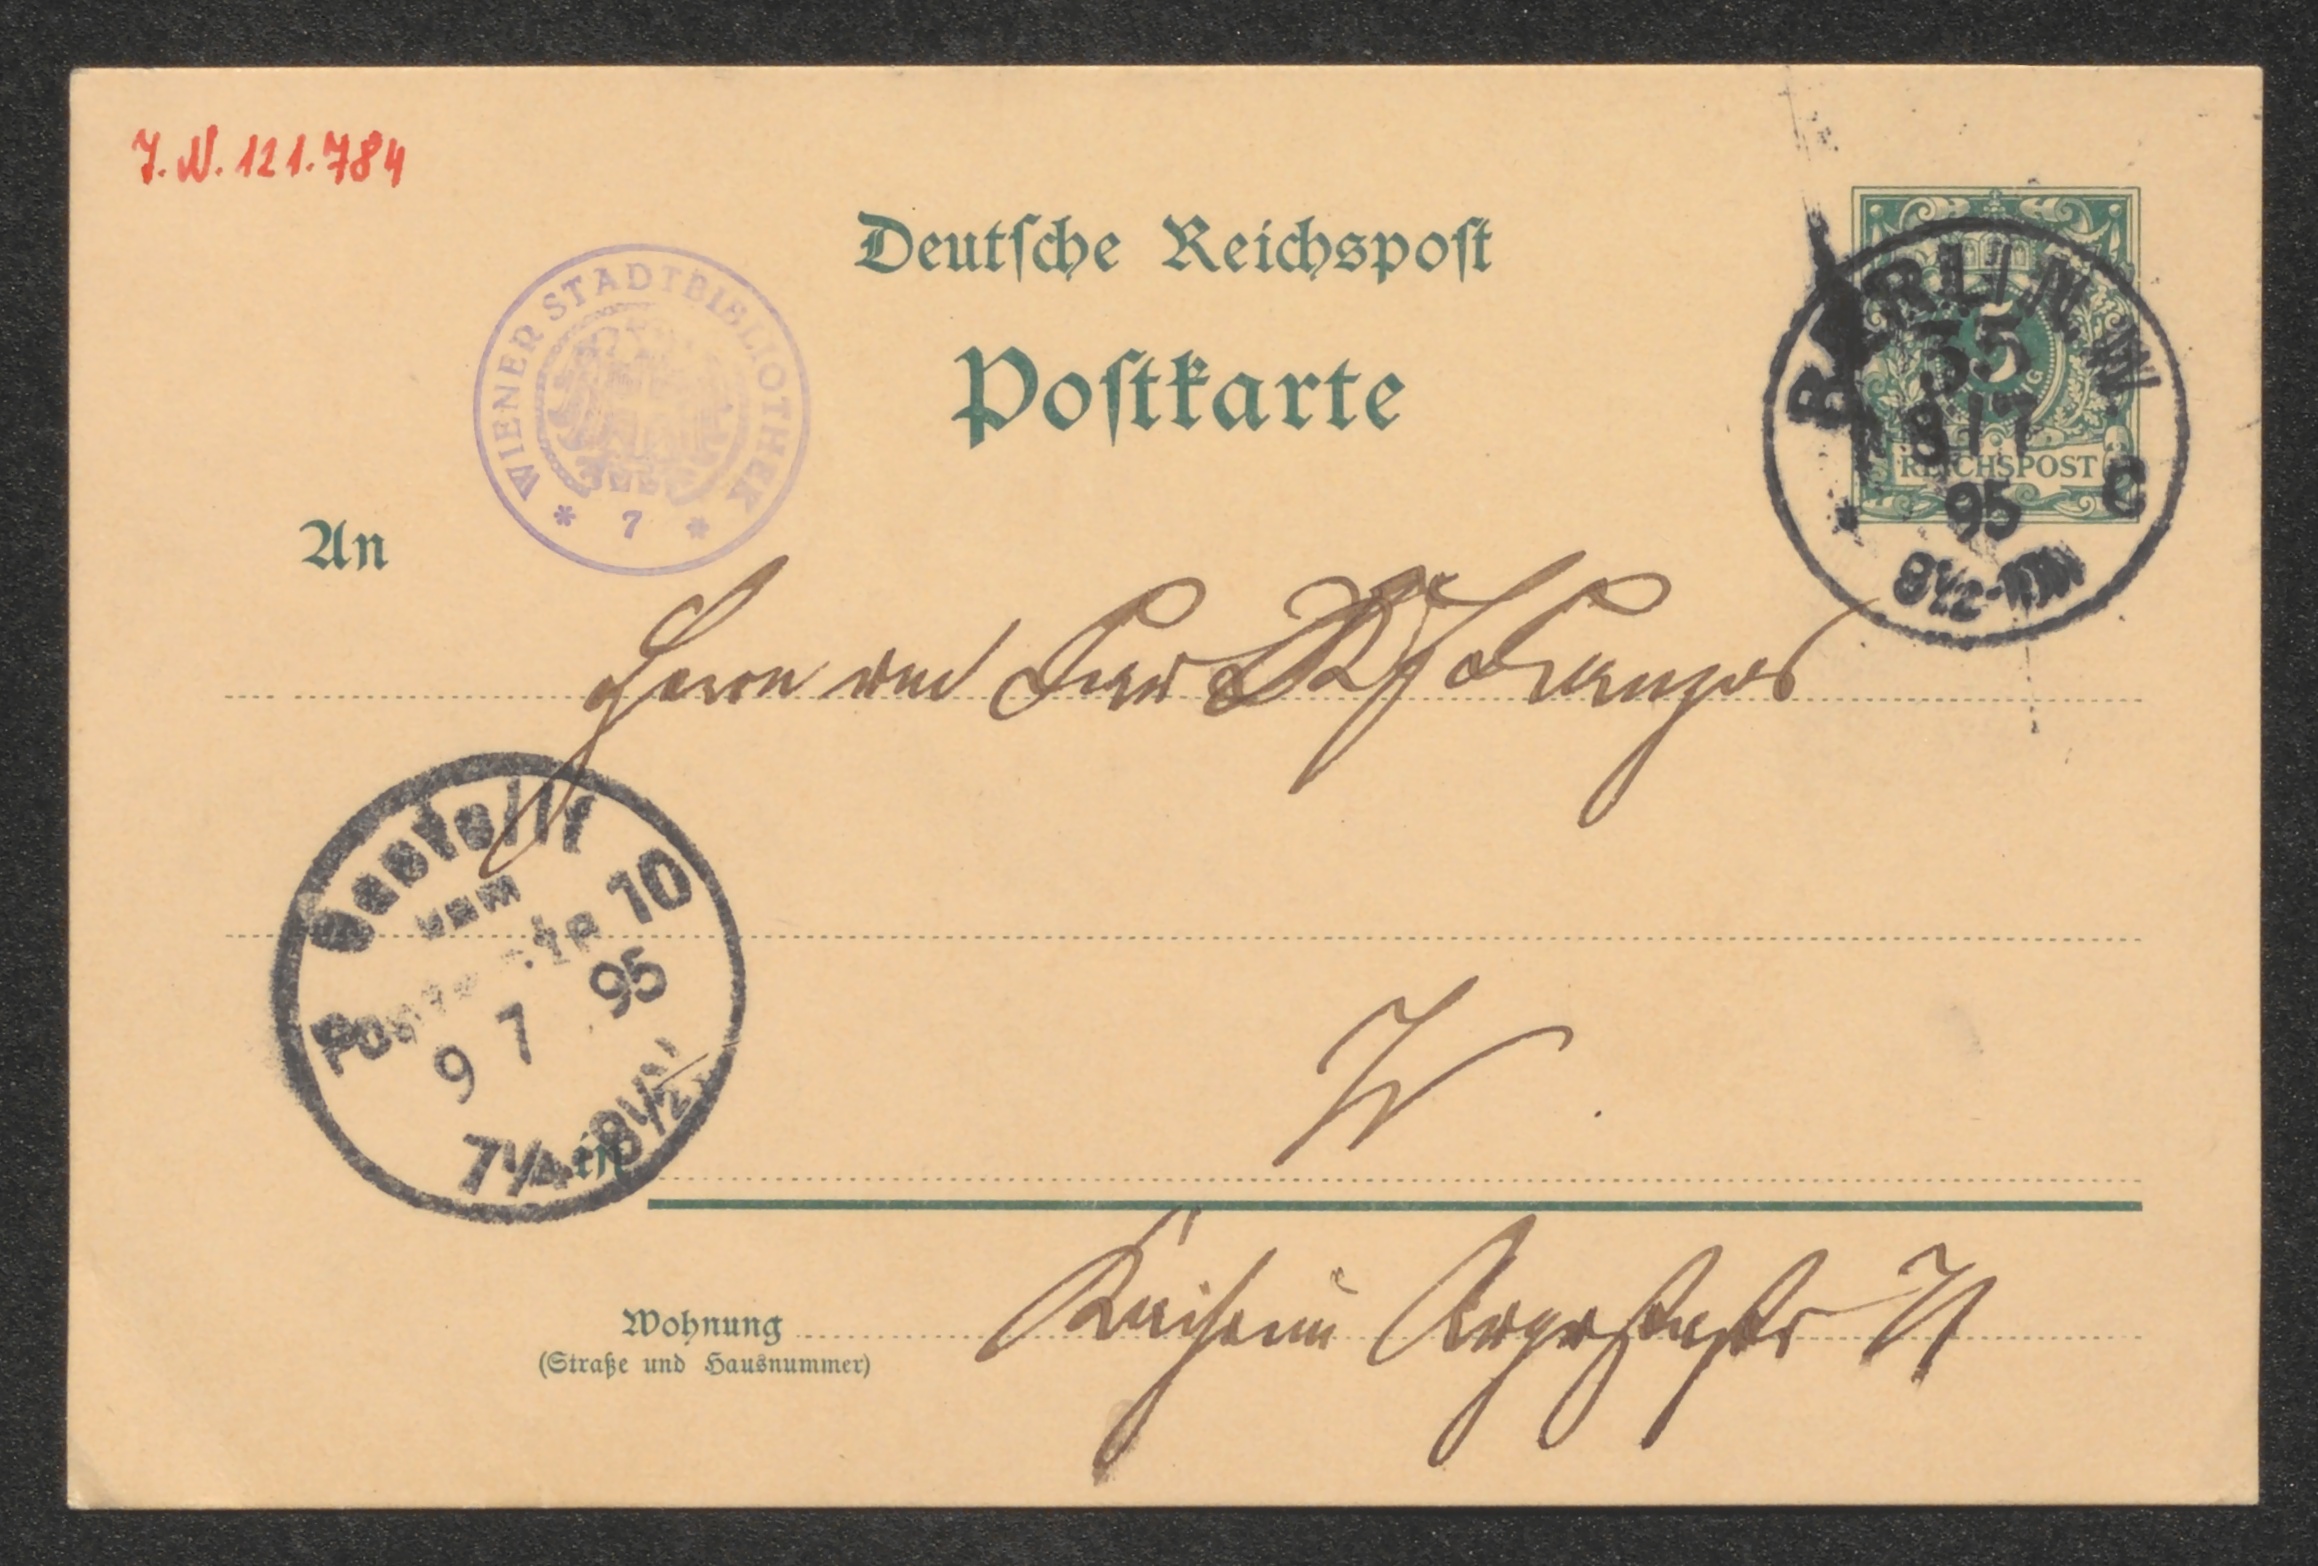 J. N. 121.784
Deutsche Reichspost
Postkarte
WIENER STADTBIBLIOTHEK
* 7 *
BERLIN W.
35
8 / 7
95
8½-
C
REICHSPOST
An
Herrn und Frau
Bestellt
vom
Postamte 10
9 7 95
7¼-8½
W.
Wohnung
(Straße und Hausnummer)
Kaiserin Augustastr